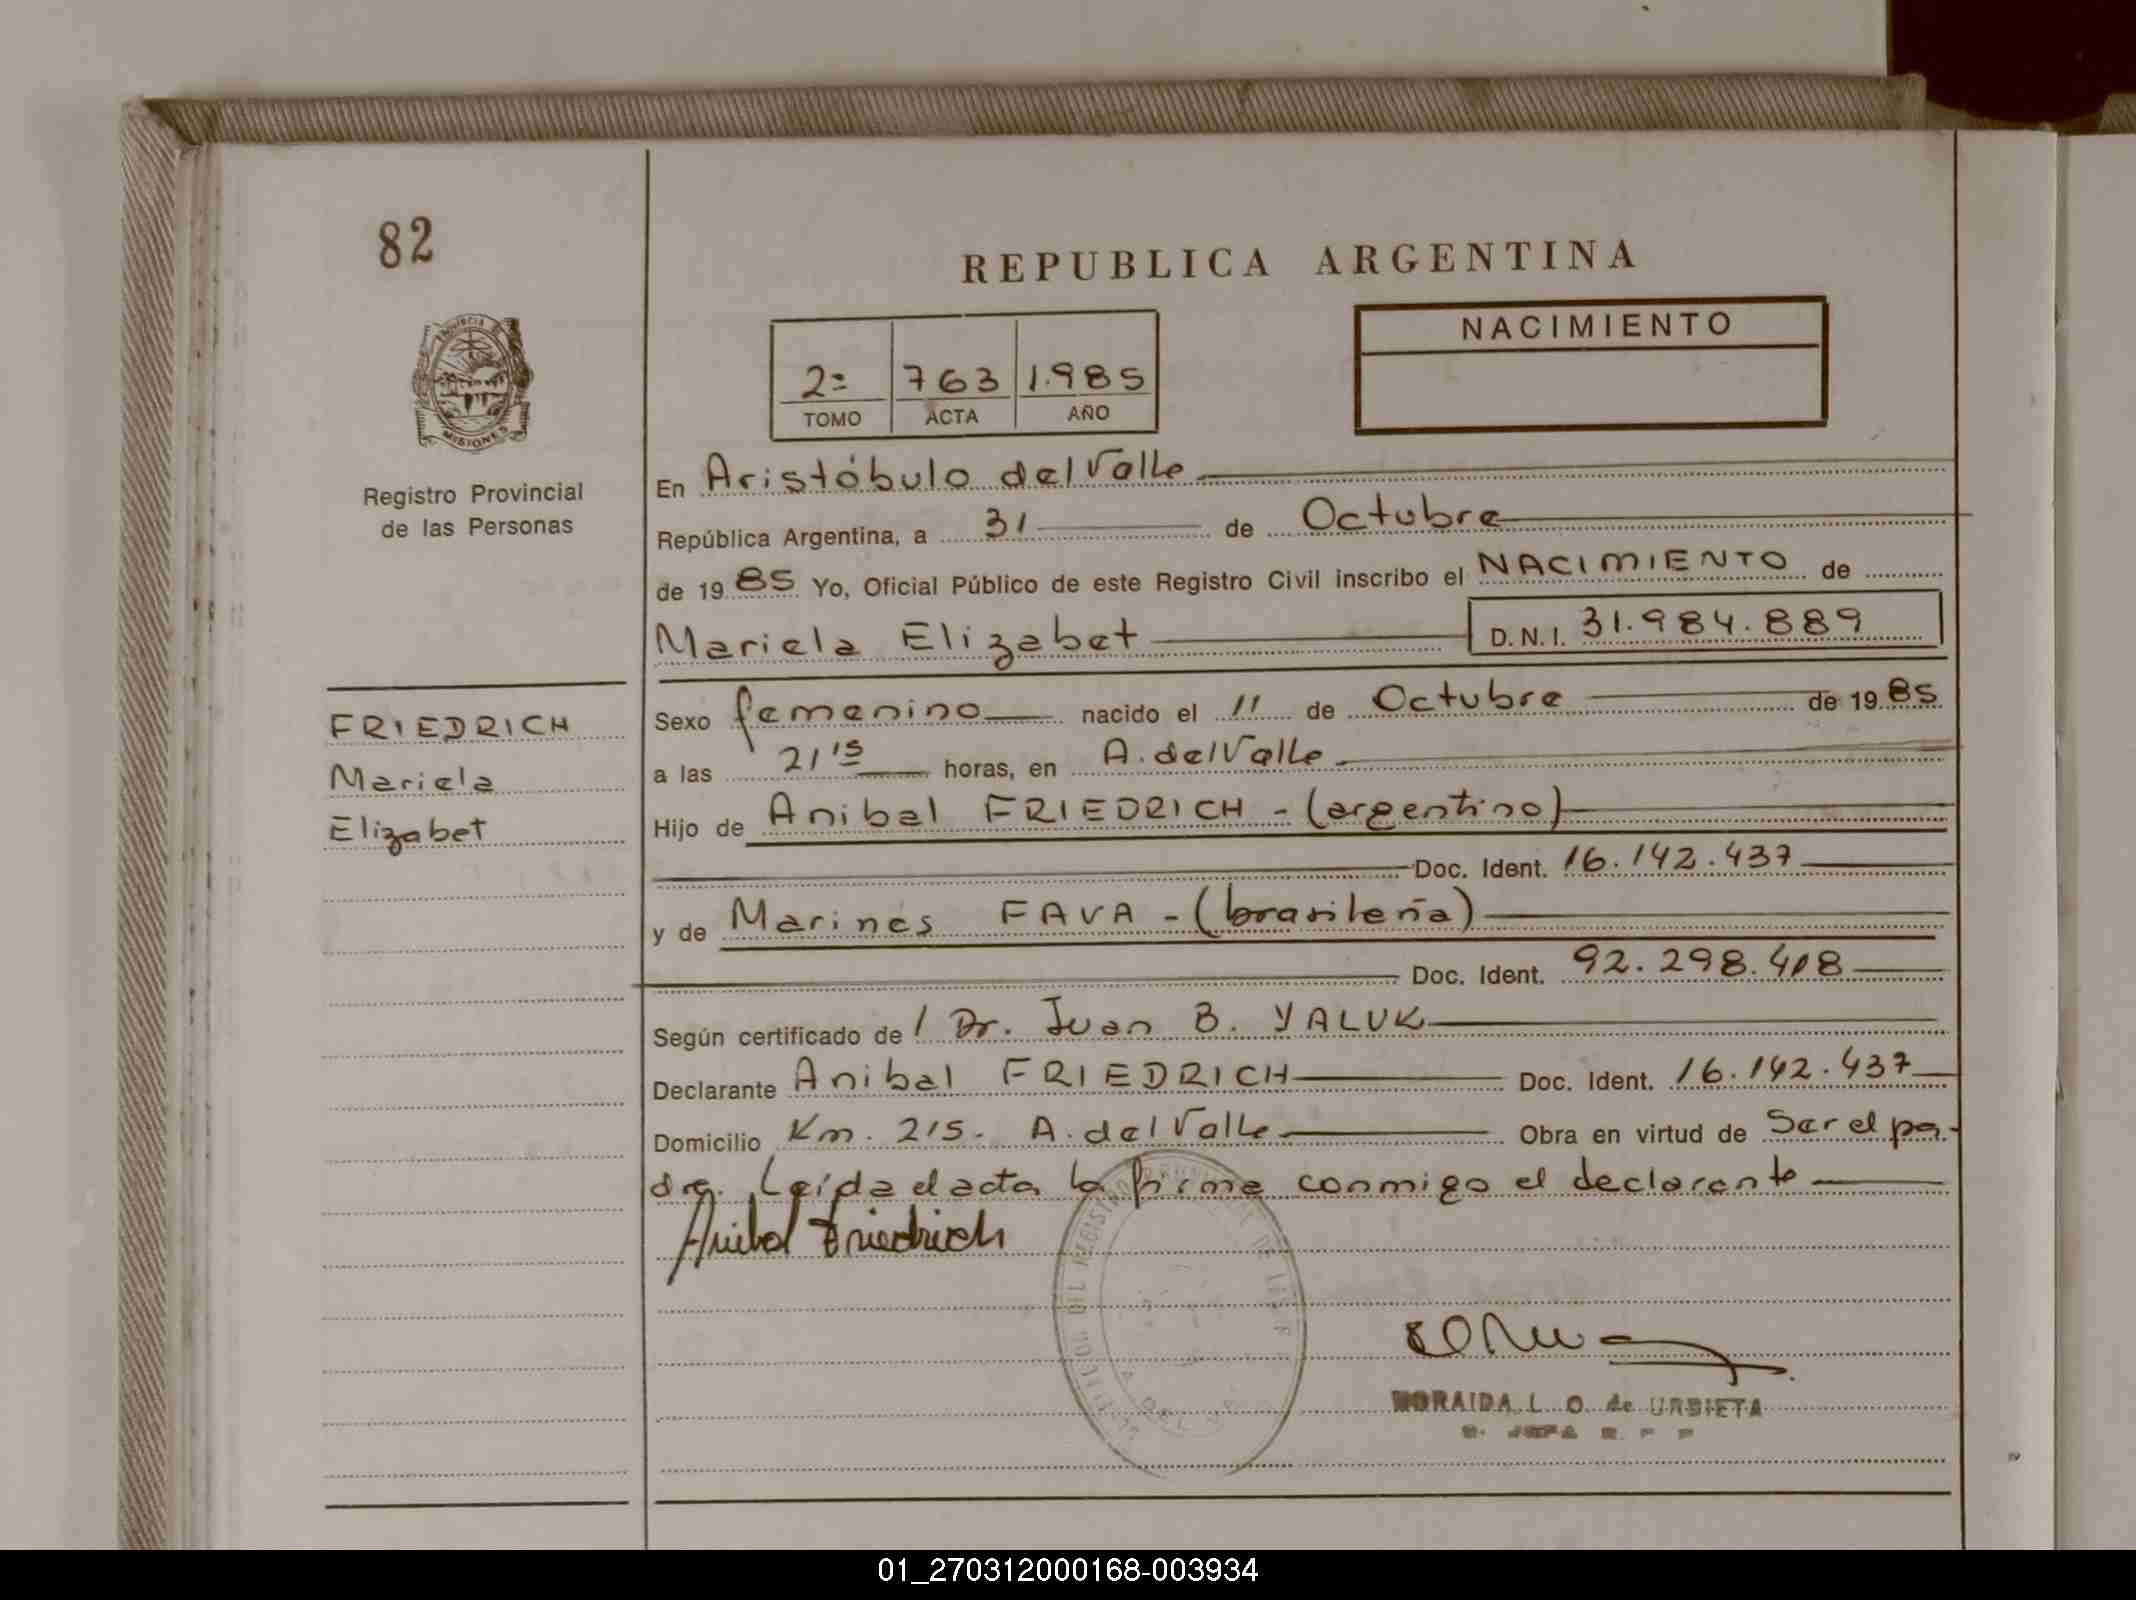 82
REPUBLICA ARGENTINA
NACIMIENTO
2= 763 1.985
TOMO ACTA AÑO
MISIONES
Registro Provincial
de las Personas
En Aristóbulo del Valle
República Argentina, a 31 de Octubre
de 19 85 Yo, Oficial Público de este Registro Civil inscribo el NACIMIENTO de
Mariela Elizabet D.N.I. 31.984.889
FRIEDRICH
Mariela
Elizabet
Sexo femenino nacido el 11 de Octubre de 19 85
a las 21 15 horas, en A. del Valle
Hijo de Anibal FRIEDRICH - (argentino)
Doc. Ident. 16.142.437
y de Marines FAVA - (brasileña)
Doc. Ident. 92.298.418
Según certificado de / Dr. Juan B. YALUK
Declarante Anibal FRIEDRICH Doc. Ident. 16.142.437
Domicilio Km. 215. A. del Valle Obra en virtud de Ser el pa-
dre. Leída el acta la firma conmigo el declarante
Anibal Friedrich
L. O. de URBIETA
01_270312000168-003934